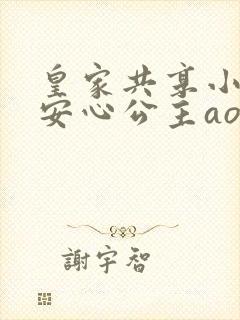 皇家共享小
安心公主ao
謝宇智